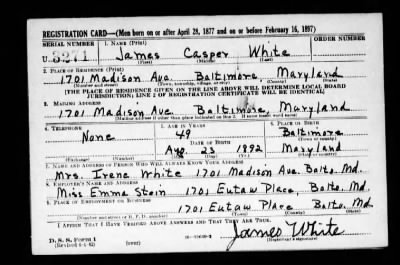 REGISTRATION CARD—(Men born on or after April 28, 1877 and on or before February 16, 1897)
SERIAL NUMBER 1. NAME (Print) ORDER NUMBER
U 3271 James Casper White
(First) (Middle) (Last)
2. PLACE OF RESIDENCE (Print)
1701 Madison Ave. Baltimore, Maryland
(Number and street) (Town, township, village, or city) (County) (State)
[THE PLACE OF RESIDENCE GIVEN ON THE LINE ABOVE WILL DETERMINE LOCAL BOARD
JURISDICTION; LINE 2 OF REGISTRATION CERTIFICATE WILL BE IDENTICAL]
3. MAILING ADDRESS
1701 Madison Ave. Baltimore, Maryland
[Mailing address if other than place indicated on line 2. If same insert word same]
4. TELEPHONE 5. AGE IN YEARS 6. PLACE OF BIRTH
None 49 Baltimore
DATE OF BIRTH (Town or county)
Aug 23 1892 Maryland
(Exchange) (Number) (Mo.) (Day) (Yr.) (State or country)
7. NAME AND ADDRESS OF PERSON WHO WILL ALWAYS KNOW YOUR ADDRESS
Mrs. Irene White 1701 Madison Ave. Balto. Md.
8. EMPLOYER'S NAME AND ADDRESS
Miss Emma Stein 1701 Eutaw Place, Balto. Md.
9. PLACE OF EMPLOYMENT OR BUSINESS
1701 Eutaw Place, Balto. Md.
(Number and street or R. F. D. number) (Town) (County) (State)
I AFFIRM THAT I HAVE VERIFIED ABOVE ANSWERS AND THAT THEY ARE TRUE.
James White
D. S. S. FORM 1
(Revised 4-1-42) (over) (Registrant's signature)